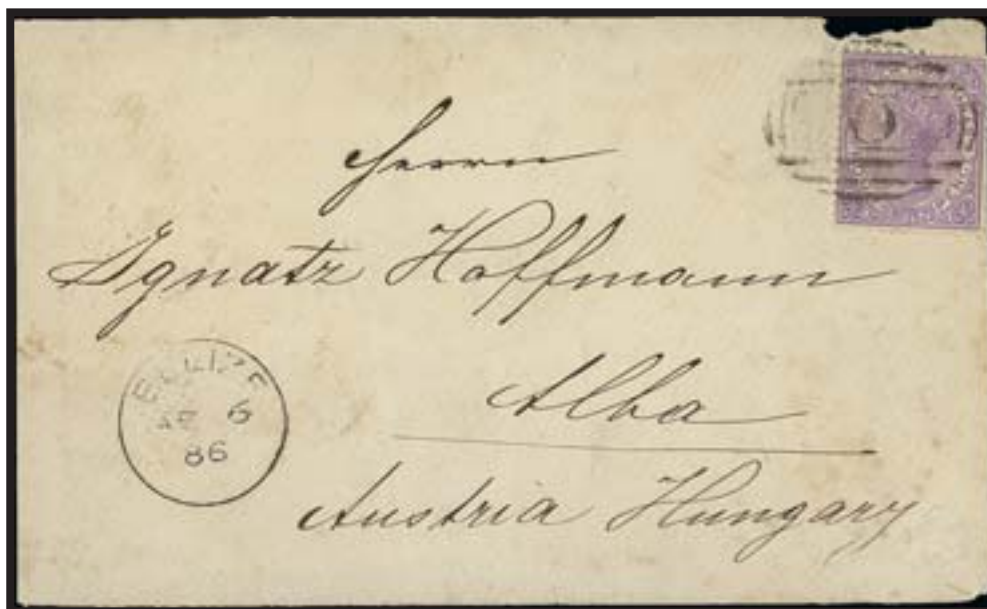 Herrn
Ignatz Hoffmann
Alba
Austria Hungary
BELIZE
6
86